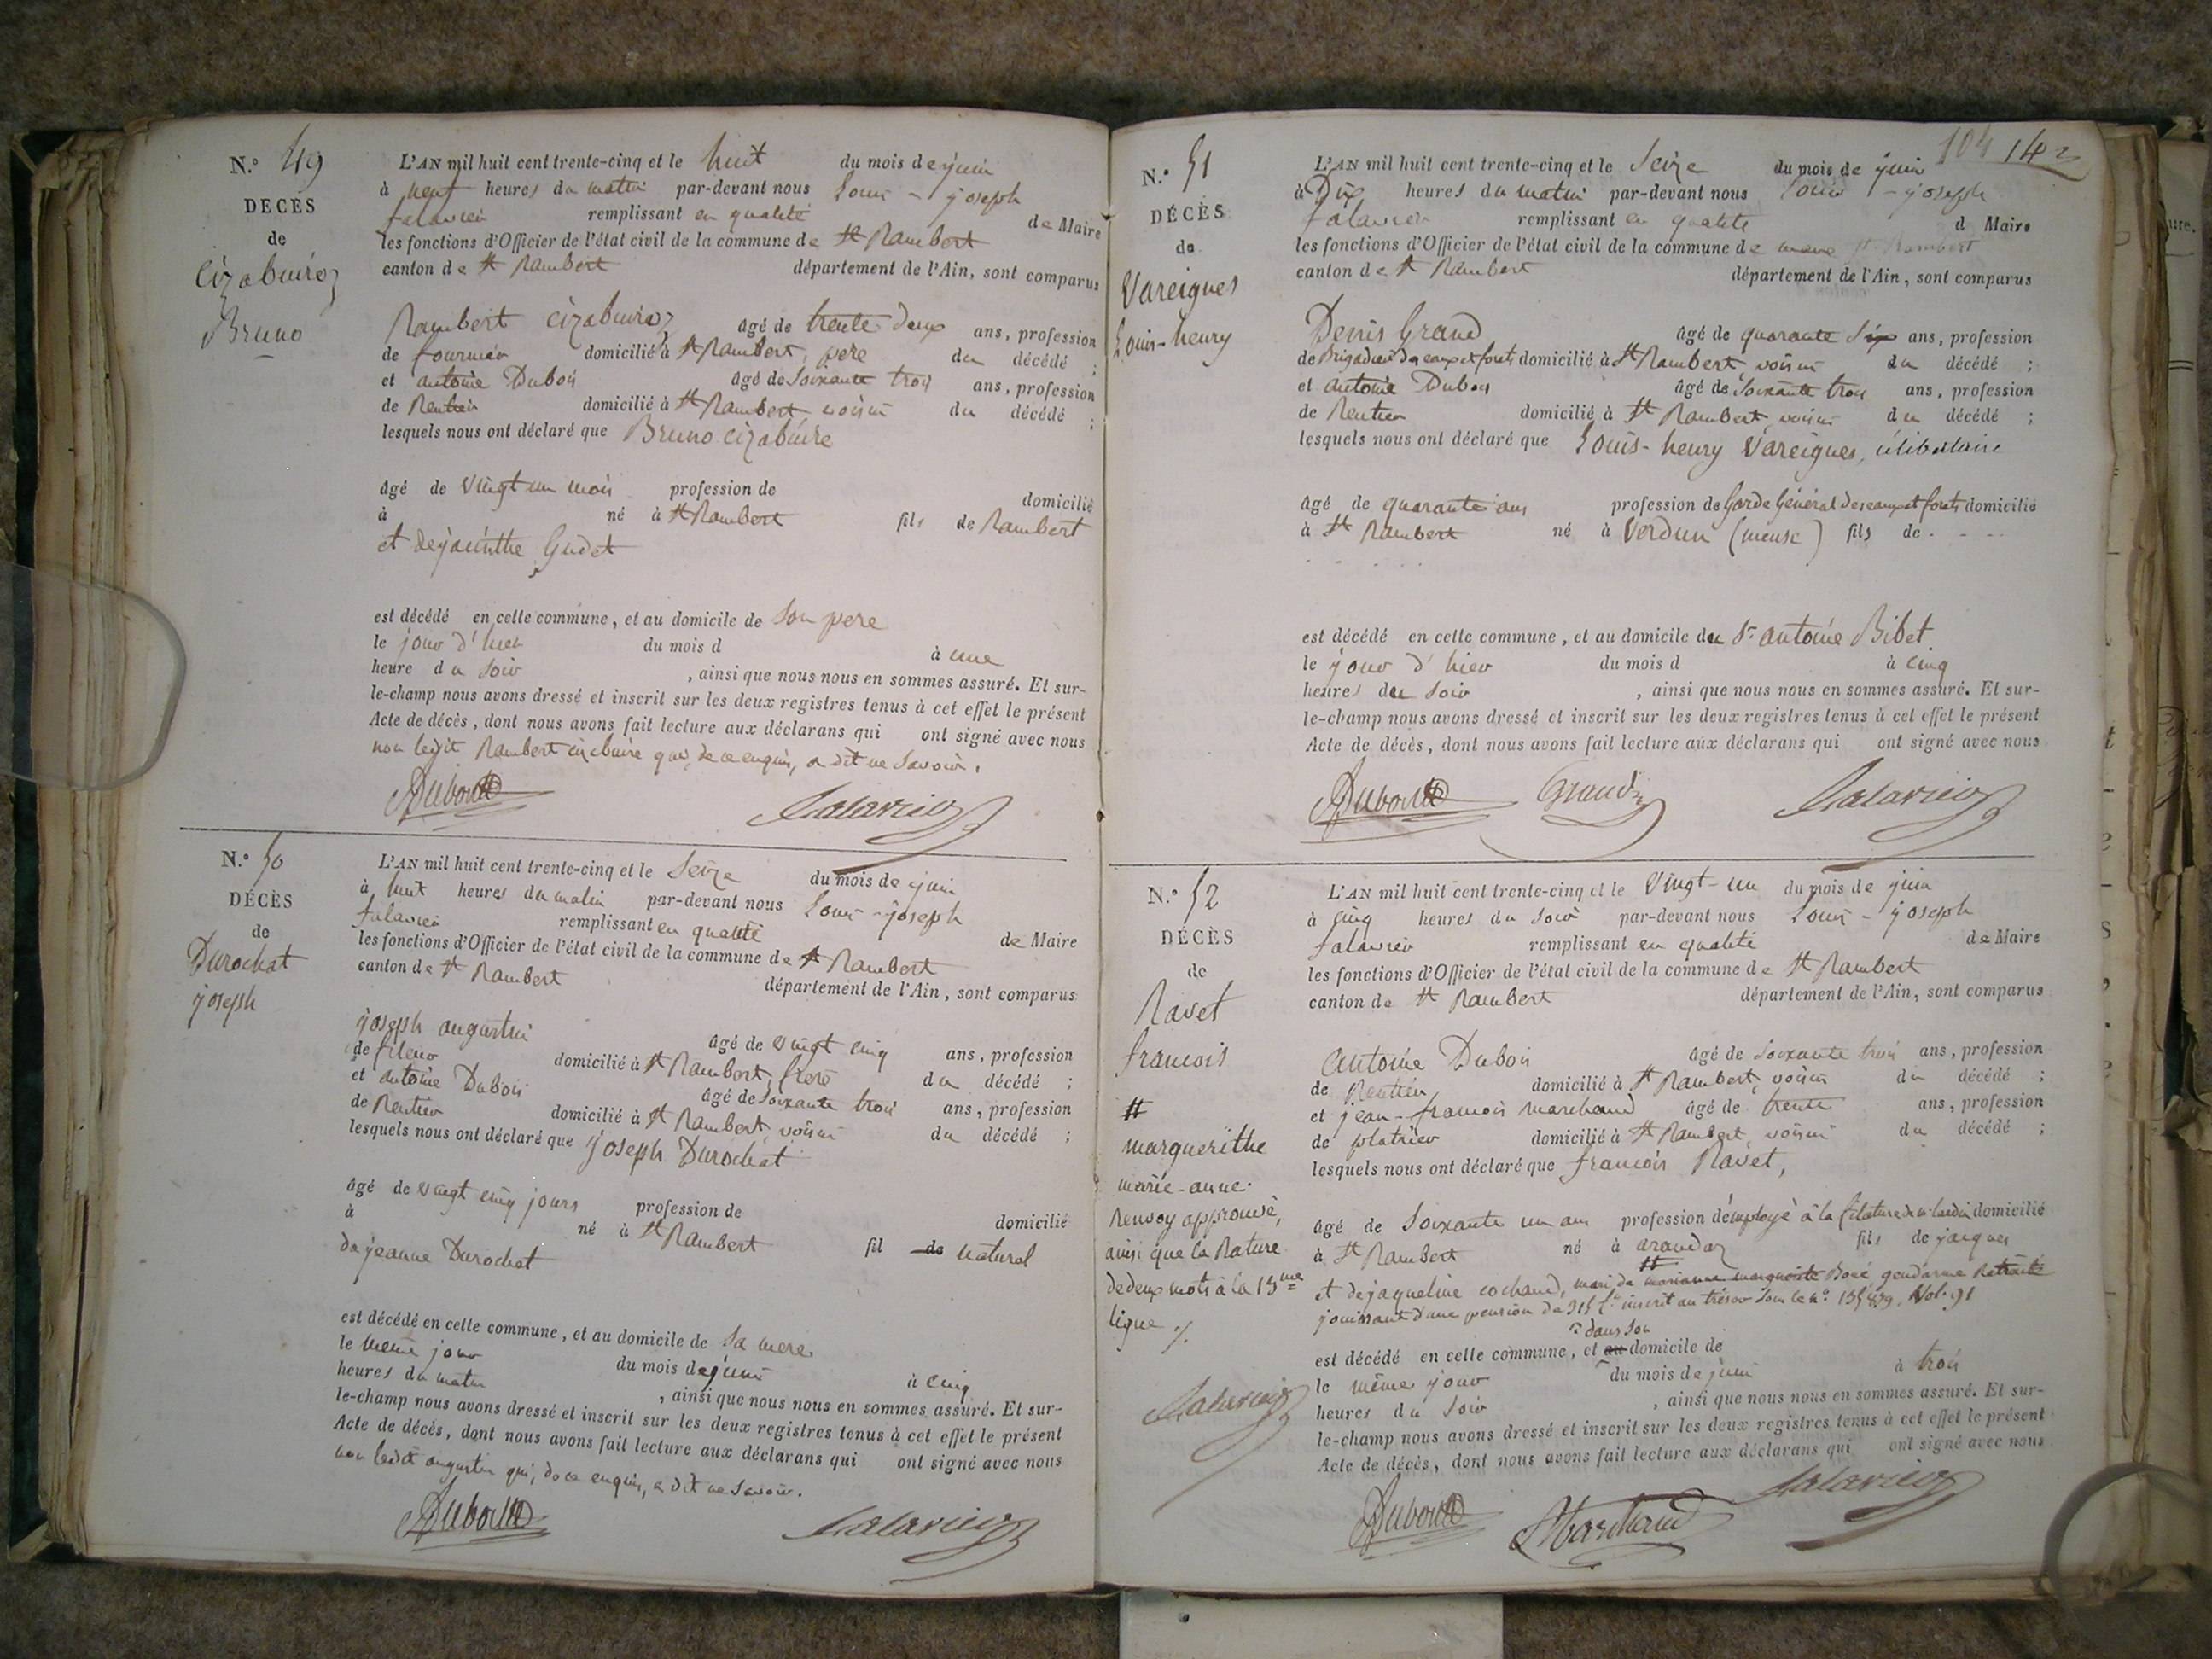 N.° 49
DECÈS
de
Cizabuiroz
Bruno
L'AN mil huit cent trente-cinq et le huit du mois de juin
à neuf heures du matin par-devant nous Louis - joseph
falavier remplissant en qualité de Maire
les fonctions d'Officier de l'état civil de la commune de St Rambert
canton de St Rambert département de l'Ain, sont comparus
Rambert Cizabuiroz âgé de trente deux ans, profession
de fournier domicilié à St Rambert, pere du décédé ;
et antoine Dubois âgé de Soixante trois ans, profession
de Rentier domicilié à St Rambert voisin du décédé ;
lesquels nous ont déclaré que Bruno Cizabuire
âgé de vingt un mois profession de domicilié
à né à St Rambert fils de Rambert
et de jacinthe Gudet
est décédé en cette commune, et au domicile de Son pere
le jour d'hier du mois d à une
heure du Soir , ainsi que nous nous en sommes assuré. Et sur-
le-champ nous avons dressé et inscrit sur les deux registres tenus à cet effet le présent
Acte de décès, dont nous avons fait lecture aux déclarans qui ont signé avec nous
non ledit Rambert cizabuire qui, de ce enquis, a dit ne Savoir.
Dubois falavier
N.° 50
DÉCÈS
de
Durochat
joseph
L'AN mil huit cent trente-cinq et le Seize du mois de juin
à huit heures du matin par-devant nous Louis - joseph
falavier remplissant en qualité de Maire
les fonctions d'Officier de l'état civil de la commune de St Rambert
canton de St Rambert département de l'Ain, sont comparus
joseph augustin âgé de vingt cinq ans, profession
de fileur domicilié à St Rambert, frere du décédé ;
et antoine Dubois âgé de Soixante trois ans, profession
de Rentier domicilié à St Rambert voisin du décédé ;
lesquels nous ont déclaré que joseph Durochat
âgé de vingt cinq jours profession de domicilié
à né à St Rambert fil de naturel
de jeanne Durochat
est décédé en cette commune, et au domicile de Sa mere
le même jour du mois de juin à cinq
heures du matin , ainsi que nous nous en sommes assuré. Et sur-
le-champ nous avons dressé et inscrit sur les deux registres tenus à cet effet le présent
Acte de décès, dont nous avons fait lecture aux déclarans qui ont signé avec nous
non ledit augustin qui, de ce enquis, a dit ne Savoir.
Dubois falavier
104 142
N.° 51
DÉCÈS
de
Vareignes
Louis-henry
L'AN mil huit cent trente-cinq et le Seize du mois de juin
à Dix heures du matin par-devant nous Louis - joseph
falavier remplissant en qualité d Maire
les fonctions d'Officier de l'état civil de la commune de St Rambert
canton de St Rambert département de l'Ain, sont comparus
Denis Grand âgé de quarante Six ans, profession
de Brigadier des eaux et forets domicilié à St Rambert voisin du décédé ;
et antoine Dubois âgé de Soixante trois ans, profession
de Rentier domicilié à St Rambert voisin du décédé ;
lesquels nous ont déclaré que Louis-henry Vareignes, célibataire
âgé de quarante ans profession de Garde Général des eaux et forets domicilié
à St Rambert né à Verdun (meuse) fils de . - - .
- - - - - -
est décédé en cette commune, et au domicile du Sr. antoine Bibet
le jour d'hier du mois d à cinq
heures du Soir , ainsi que nous nous en sommes assuré. Et sur-
le-champ nous avons dressé et inscrit sur les deux registres tenus à cet effet le présent
Acte de décès, dont nous avons fait lecture aux déclarans qui ont signé avec nous
Dubois Grand falavier
N.° 52
DÉCÈS
de
Ravet
francois
#
marguerithe
marie-anne.
Renvoy approuvé,
ainsi que la Rature
de deux mots à la 15me
ligne ./.
falavier
L'AN mil huit cent trente-cinq et le Vingt-un du mois de juin
à cinq heures du Soir par-devant nous Louis - joseph
falavier remplissant en qualité de Maire
les fonctions d'Officier de l'état civil de la commune de St Rambert
canton de St Rambert département de l'Ain, sont comparus
Antoine Dubois âgé de Soixante trois ans, profession
de Rentier domicilié à St Rambert, voisin du décédé ;
et jean-francois marchand âgé de trente ans, profession
de platrier domicilié à St Rambert, voisin du décédé ;
lesquels nous ont déclaré que francois Ravet,
âgé de Soixante un ans profession d'employé à la filature de domicilié
à St Rambert né à arandaz fils de jacques
#
et de jaqueline cochand, mari de marianne marguerite Boré gendarme Retraité
jouissant d'une pension de 315 f. inscrit au trésor Sous le n°. Vol. 91
dans Son
est décédé en cette commune, et au domicile de
le même jour du mois de juin à trois
heures du Soir , ainsi que nous nous en sommes assuré. Et sur-
le-champ nous avons dressé et inscrit sur les deux registres tenus à cet effet le présent
Acte de décès, dont nous avons fait lecture aux déclarans qui ont signé avec nous
Dubois Marchand falavier